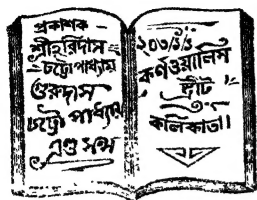 প্রকাশক -
শ্রীহরিদাস
চট্টোপাধ্যায়
গুরুদাস
চট্টোপাধ্যায়
এণ্ড সন্স
২০৩/১/১
কর্নওয়ালিস
ষ্ট্রীট
কলিকাতা।